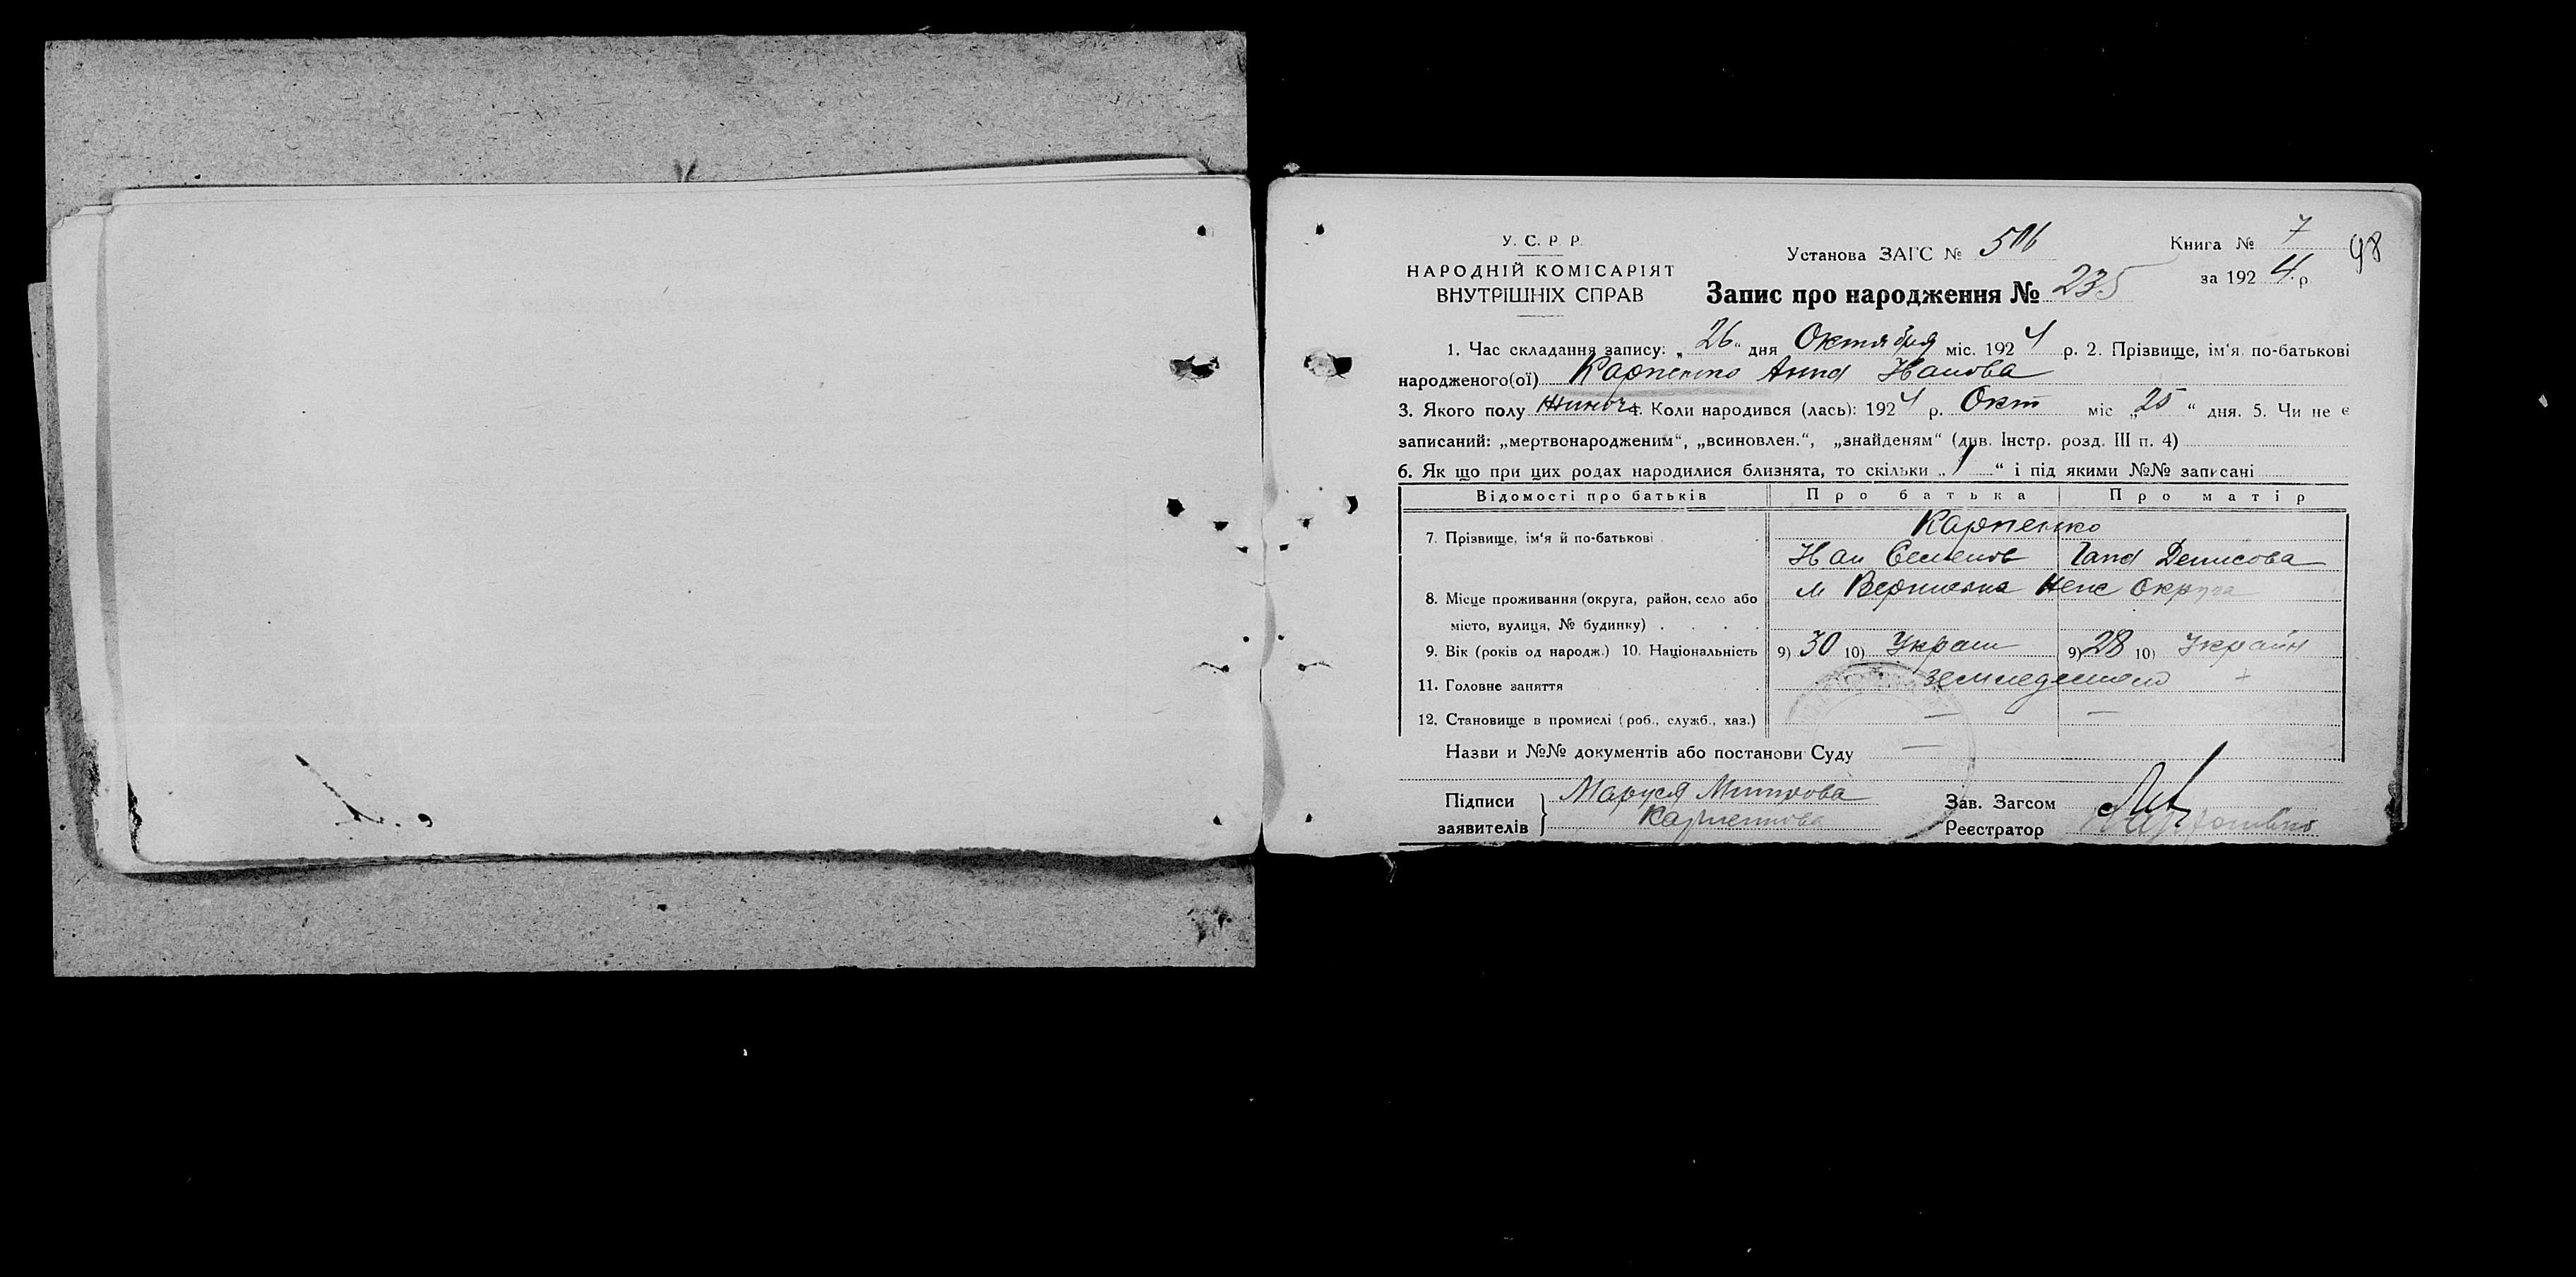 У. С. Р. Р.
НАРОДНІЙ КОМІСАРІЯТ
ВНУТРІШНІХ СПРАВ
Установа ЗАГС № 506
Книга № 7
98
за 1924 р.
Запис про народження № 235
1. Час складання запису: „26“ дня Октября міс. 1924 р. 2. Прізвище, ім'я по-батькові
народженого(ої) Карпенко Анна Иванова
3. Якого полу Жиноч 4. Коли народився (лась): 1924 р. Окт міс „25“ дня. 5. Чи не є
записаний: „мертвонародженим“, „всиновлен.“, „знайденям“ (див. Інстр. розд. III п. 4)
6. Як що при цих родах народилися близнята, то скільки „1“ і під якими №№ записані
Відомості про батьків Про батька Про матір
Карпенко
7. Прізвище, ім'я й по-батькові
Иван Семенов Ганна Денисова
м Вертиевка Неж Округа
8. Місце проживання (округа, район, село або
місто, вулиця, № будинку)
9. Вік (років од народж.) 10. Національність 9) 30 10) Украин 9) 28 10) Украин
11. Головне заняття
12. Становище в промислі (роб., служб., хаз.) — —
Назви и №№ документів або постанови Суду —
Підписи
заявителів
Маруся
Зав. Загсом
Реєстратор